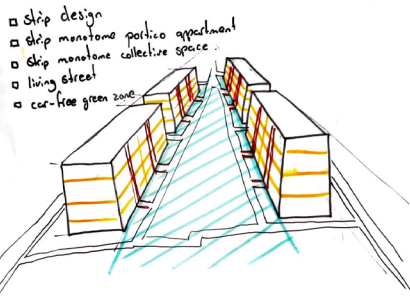 strip design
strip monotome portico appartment
strip monotome collective space
living street
car-free green zone